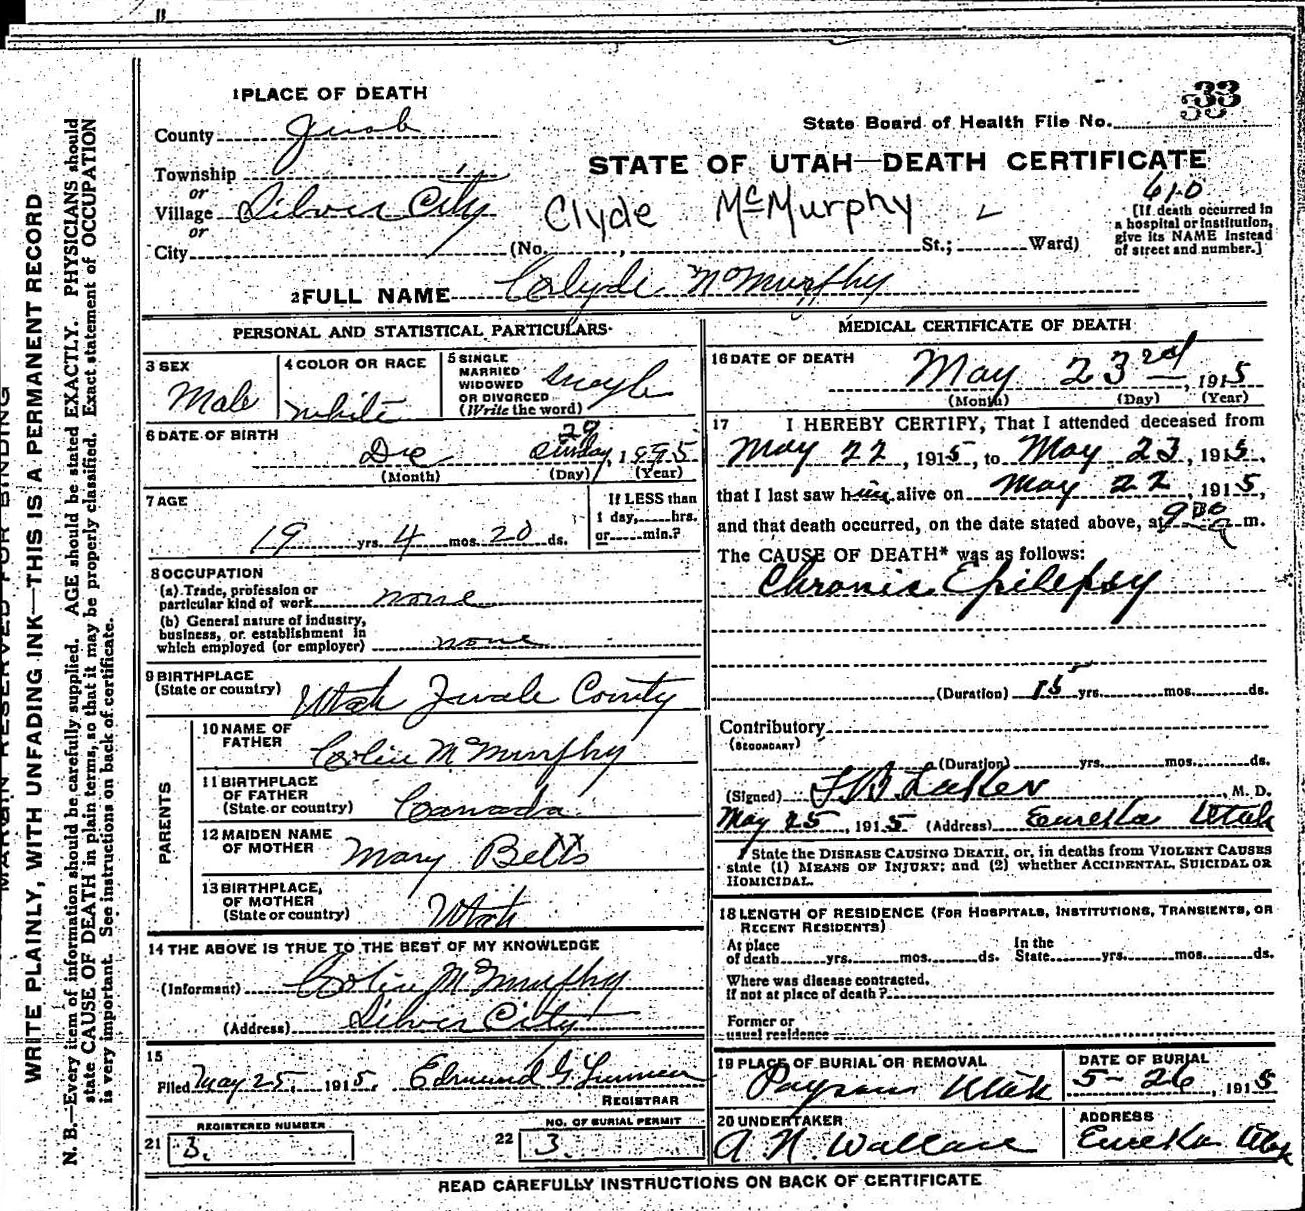 1 PLACE OF DEATH
33
County Juab
State Board of Health File No.
STATE OF UTAH—DEATH CERTIFICATE
Township
or
Village Silver City
Clyde McMurphy
610
or
City (No. St.; Ward)
[If death occurred in
a hospital or institution,
give its NAME instead
of street and number.]
2 FULL NAME Colyde McMurphy
PERSONAL AND STATISTICAL PARTICULARS
3 SEX
Male
4 COLOR OR RACE
White
5 SINGLE
MARRIED
WIDOWED
OR DIVORCED
(Write the word)
6 DATE OF BIRTH
29
(Month) (Day) (Year)
7 AGE
19 yrs. 4 mos. 20 ds.
If LESS than
1 day, hrs.
or min.?
8 OCCUPATION
(a) Trade, profession or
particular kind of work none
(b) General nature of industry,
business, or establishment in
which employed (or employer) none
9 BIRTHPLACE
(State or country) Utah County
PARENTS
10 NAME OF
FATHER
Colin McMurphy
11 BIRTHPLACE
OF FATHER
(State or country) Canada
12 MAIDEN NAME
OF MOTHER
Mary Betts
13 BIRTHPLACE,
OF MOTHER
(State or country) Utah
14 THE ABOVE IS TRUE TO THE BEST OF MY KNOWLEDGE
(Informant) Colin McMurphy
(Address) Silver City
15
Filed May 25, 1915, Edmund G.
REGISTRAR
REGISTERED NUMBER
21 3.
NO. OF BURIAL PERMIT
22 3.
MEDICAL CERTIFICATE OF DEATH
16 DATE OF DEATH
May 23rd, 1915
(Month) (Day) (Year)
17 I HEREBY CERTIFY, That I attended deceased from
May 22, 1915, to May 23, 1915,
that I last saw him alive on May 22, 1915,
and that death occurred, on the date stated above, at 9 30 a m.
The CAUSE OF DEATH* was as follows:
Chronic Epilepsy
(Duration) 15 yrs. mos. ds.
Contributory
(SECONDARY)
(Duration) yrs. mos. ds.
(Signed) , M. D.
May 25, 1915 (Address) Eureka Utah
State the DISEASE CAUSING DEATH, or, in deaths from VIOLENT CAUSES
state (1) MEANS OF INJURY; and (2) whether ACCIDENTAL, SUICIDAL OR
HOMICIDAL.
18 LENGTH OF RESIDENCE (FOR HOSPITALS, INSTITUTIONS, TRANSIENTS, OR
RECENT RESIDENTS)
At place
of death yrs. mos. ds.
In the
State yrs. mos. ds.
Where was disease contracted,
if not at place of death?
Former or
usual residence
19 PLACE OF BURIAL OR REMOVAL
Payson Utah
DATE OF BURIAL
5-26, 1915
20 UNDERTAKER
A. N. Wallace
ADDRESS
Eureka Utah
READ CAREFULLY INSTRUCTIONS ON BACK OF CERTIFICATE
MARGIN RESERVED FOR BINDING
WRITE PLAINLY, WITH UNFADING INK—THIS IS A PERMANENT RECORD
N. B.—Every item of information should be carefully supplied. AGE should be stated EXACTLY. PHYSICIANS should
state CAUSE OF DEATH in plain terms, so that it may be properly classified. Exact statement of OCCUPATION
is very important. See instructions on back of certificate.